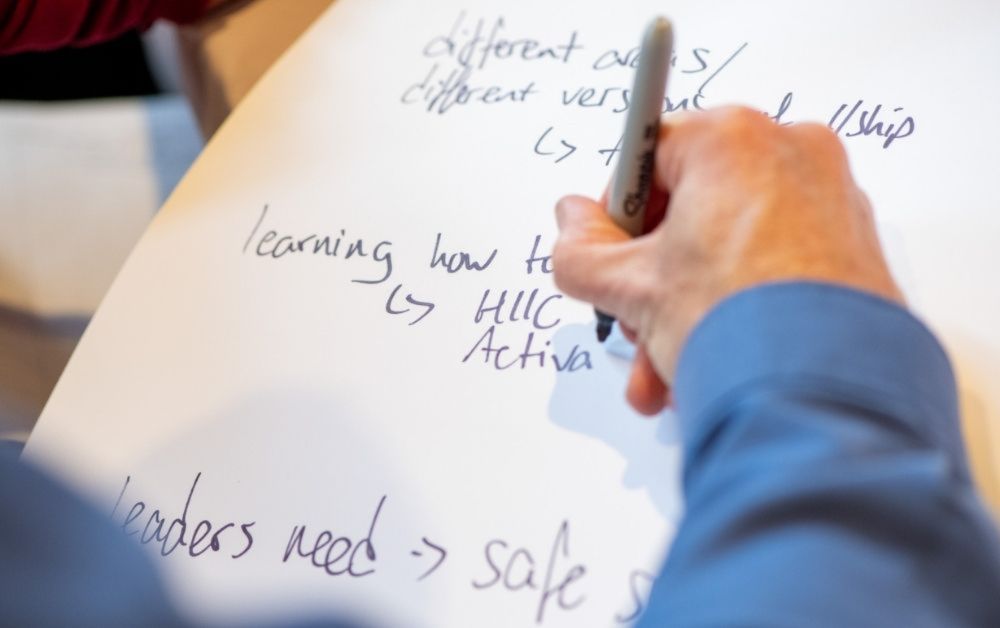 different areas/
different versions of l/ship
↳
learning how to
↳ HIIC
Activa
leaders need -> safe s
Sharpie